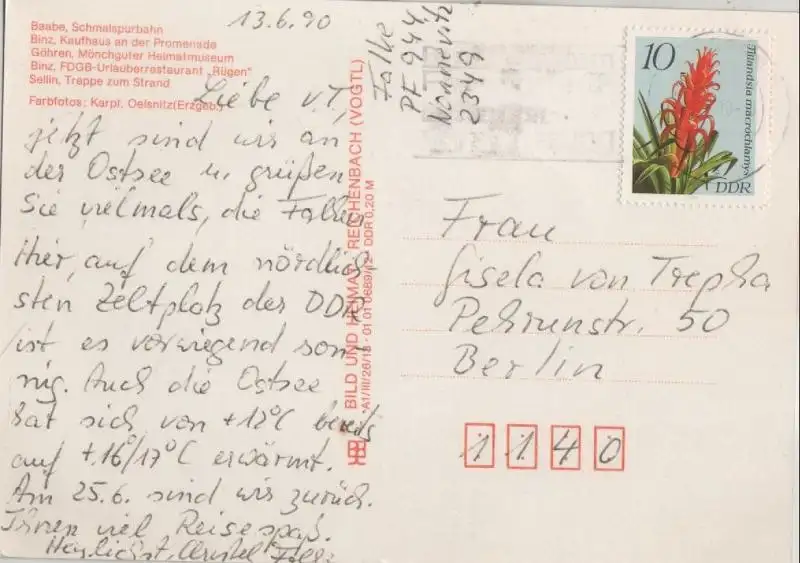 13.6.90
Baabe, Schmalspurbahn
Binz, Kaufhaus an der Promenade
Göhren, Mönchguter Heimatmuseum
Binz, FDGB-Urlauberrestaurant „Rügen"
Sellin, Treppe zum Strand
Farbfotos: Karpf, Oelsnitz(Erzgeb.)
Liebe v.T.,
jetzt sind wir an
der Ostsee u. grüßen
Sie vielmals, die Falken
Hier, auf dem nördlich-
sten Zeltplatz der DDR
ist es vorwiegend son-
nig. Auch die Ostsee
hat sich von +12°C bereits
auf +16°/17°C erwärmt.
Am 25.6. sind wir zurück.
Ihnen viel Reisespaß.
Herzlichst, Christel
BILD UND HEIMAT REICHENBACH (VOGTL)
Falke
PF 944
Nonnevitz
2349
10
Tillandsia macrochlamys
DDR
Frau
Gisela von Trepha
Str. 50
Berlin
1140